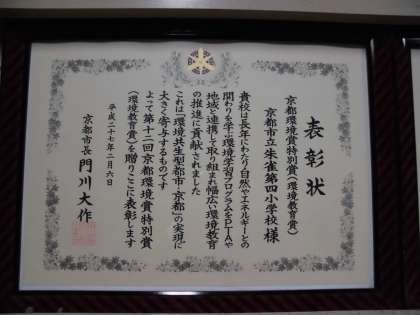 表彰状
京都環境賞特別賞(環境教育賞)
京都市立朱雀第四小学校様
貴校は長年にわたり自然やエネルギーとの
関わりを学ぶ環境学習プログラムをPTAや
地域と連携して取り組まれ幅広い環境教育
の推進に貢献されました
これは「環境共生型都市・京都」の実現に
大きく寄与するものです
よって第十二回京都環境賞特別賞
(環境教育賞)を贈りここに表彰します
平成二十七年二月六日
京都市長 門川大作